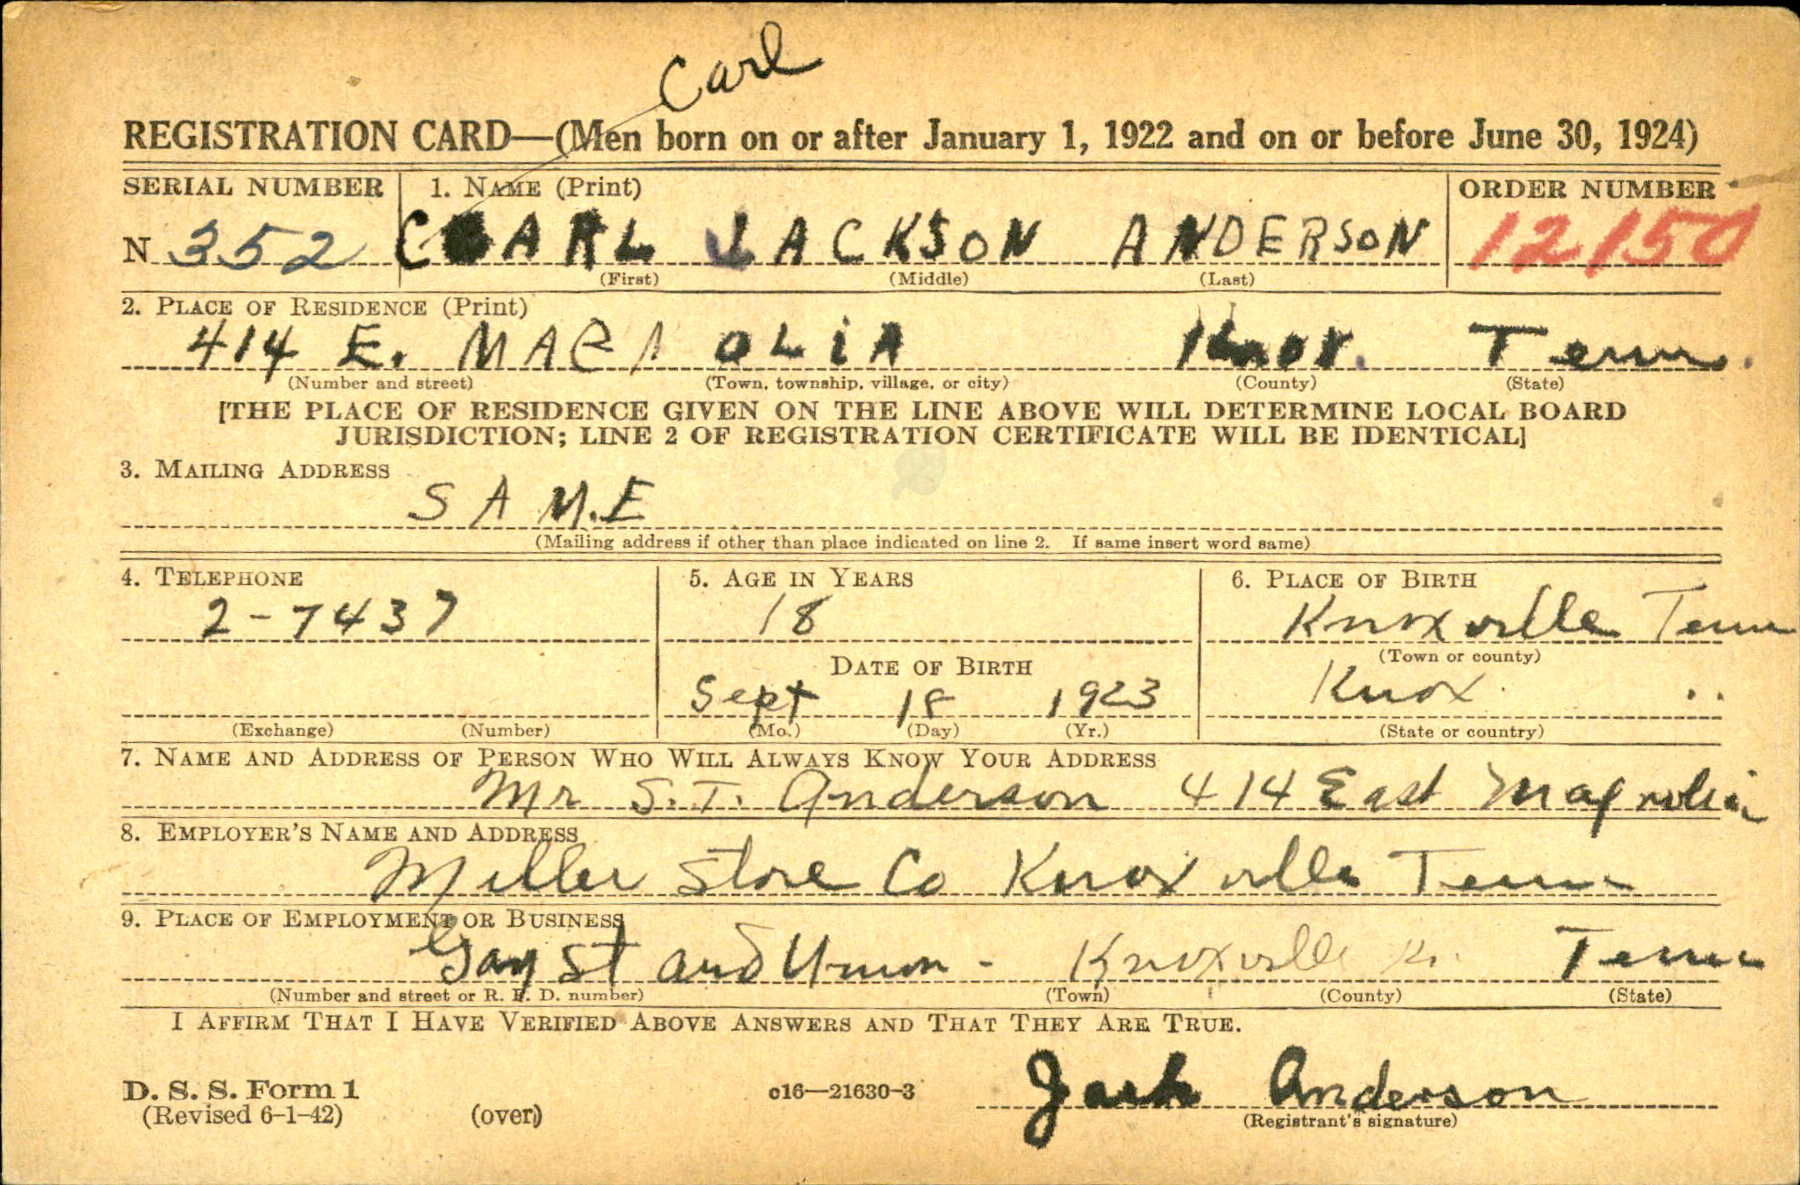 Carl
REGISTRATION CARD—(Men born on or after January 1, 1922 and on or before June 30, 1924)
SERIAL NUMBER 1. NAME (Print) ORDER NUMBER
N 352 CARL JACKSON ANDERSON 12150
(First) (Middle) (Last)
2. PLACE OF RESIDENCE (Print)
414 E. MAGNOLIA Knox. Tenn.
(Number and street) (Town, township, village, or city) (County) (State)
[THE PLACE OF RESIDENCE GIVEN ON THE LINE ABOVE WILL DETERMINE LOCAL BOARD
JURISDICTION; LINE 2 OF REGISTRATION CERTIFICATE WILL BE IDENTICAL]
3. MAILING ADDRESS
SAME
(Mailing address if other than place indicated on line 2. If same insert word same)
4. TELEPHONE 5. AGE IN YEARS 6. PLACE OF BIRTH
2-7437 18 Knoxville Tenn
(Town or county)
DATE OF BIRTH
Sept 18 1923 Knox "
(Exchange) (Number) (Mo.) (Day) (Yr.) (State or country)
7. NAME AND ADDRESS OF PERSON WHO WILL ALWAYS KNOW YOUR ADDRESS
Mr S.T. Anderson 414 East Magnolia
8. EMPLOYER'S NAME AND ADDRESS
Miller Store Co Knoxville Tenn
9. PLACE OF EMPLOYMENT OR BUSINESS
Gay St and Union - Knoxville Tenn
(Number and street or R. F. D. number) (Town) (County) (State)
I AFFIRM THAT I HAVE VERIFIED ABOVE ANSWERS AND THAT THEY ARE TRUE.
D. S. S. Form 1
(Revised 6-1-42) (over) c16—21630-3 Jack Anderson
(Registrant's signature)